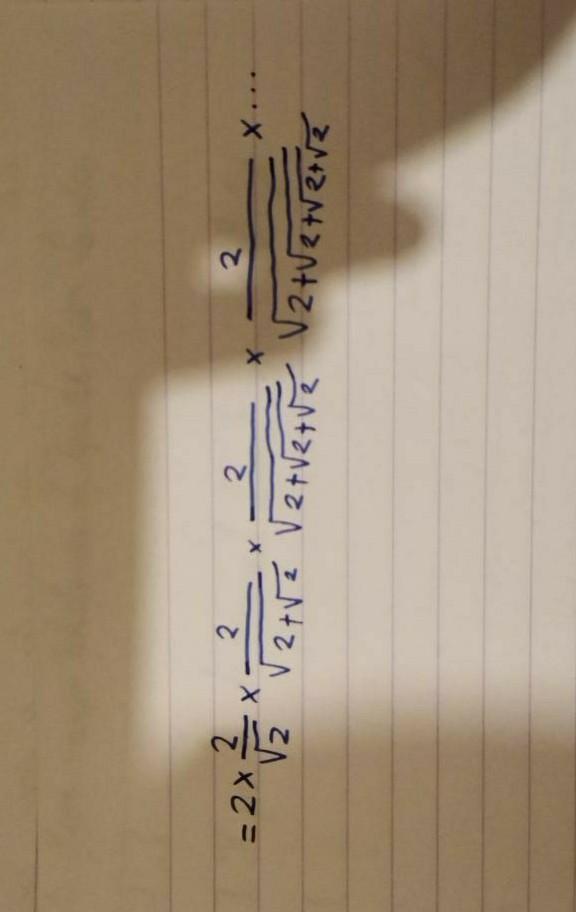 = 2 × 2/√2 × 2/√(2+√2) × 2/√(2+√(2+√2)) × 2/√(2+√(2+√(2+√2))) × ...